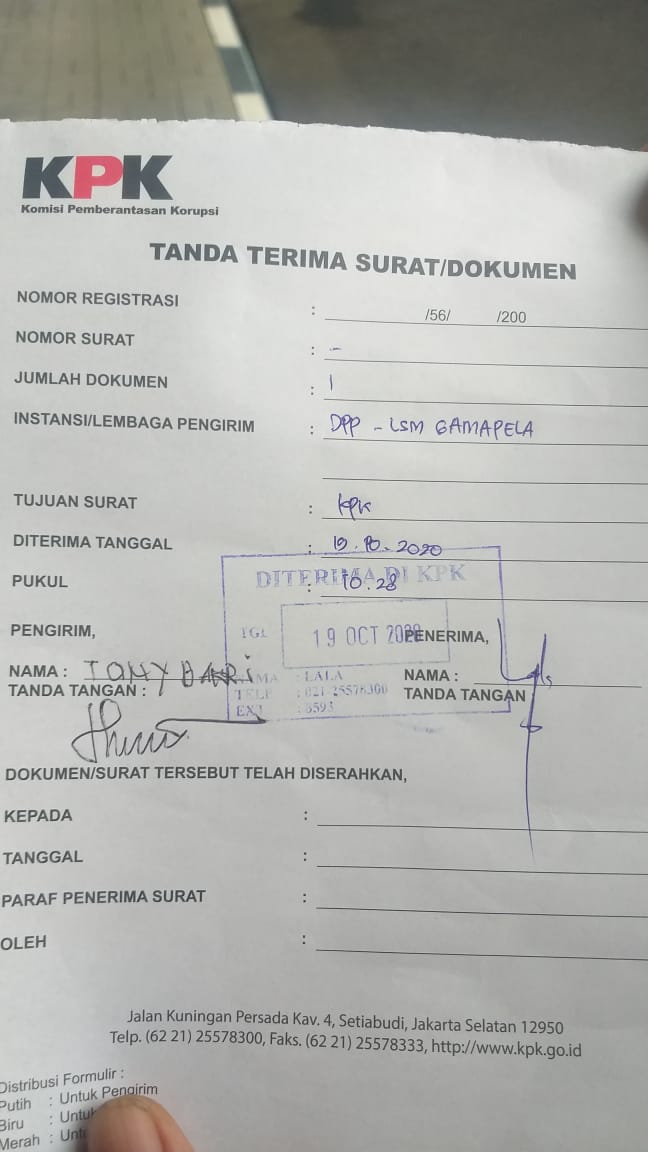 KPK
Komisi Pemberantasan Korupsi
TANDA TERIMA SURAT/DOKUMEN
NOMOR REGISTRASI : /56/ /200
NOMOR SURAT : -
JUMLAH DOKUMEN : 1
INSTANSI/LEMBAGA PENGIRIM : DPP - LSM GAMAPELA
TUJUAN SURAT : KPK
DITERIMA TANGGAL : 19.10.2020
DITERIMA DI KPK
PUKUL : 10.28
TGL 19 OCT 2020
PENGIRIM, PENERIMA,
LALA
NAMA : TONY NAMA :
TELP : 021-25578300
TANDA TANGAN : TANDA TANGAN
EXT
DOKUMEN/SURAT TERSEBUT TELAH DISERAHKAN,
KEPADA :
TANGGAL :
PARAF PENERIMA SURAT :
OLEH :
Jalan Kuningan Persada Kav. 4, Setiabudi, Jakarta Selatan 12950
Telp. (62 21) 25578300, Faks. (62 21) 25578333, http://www.kpk.go.id
Distribusi Formulir :
Putih : Untuk Pengirim
Biru :
Merah :